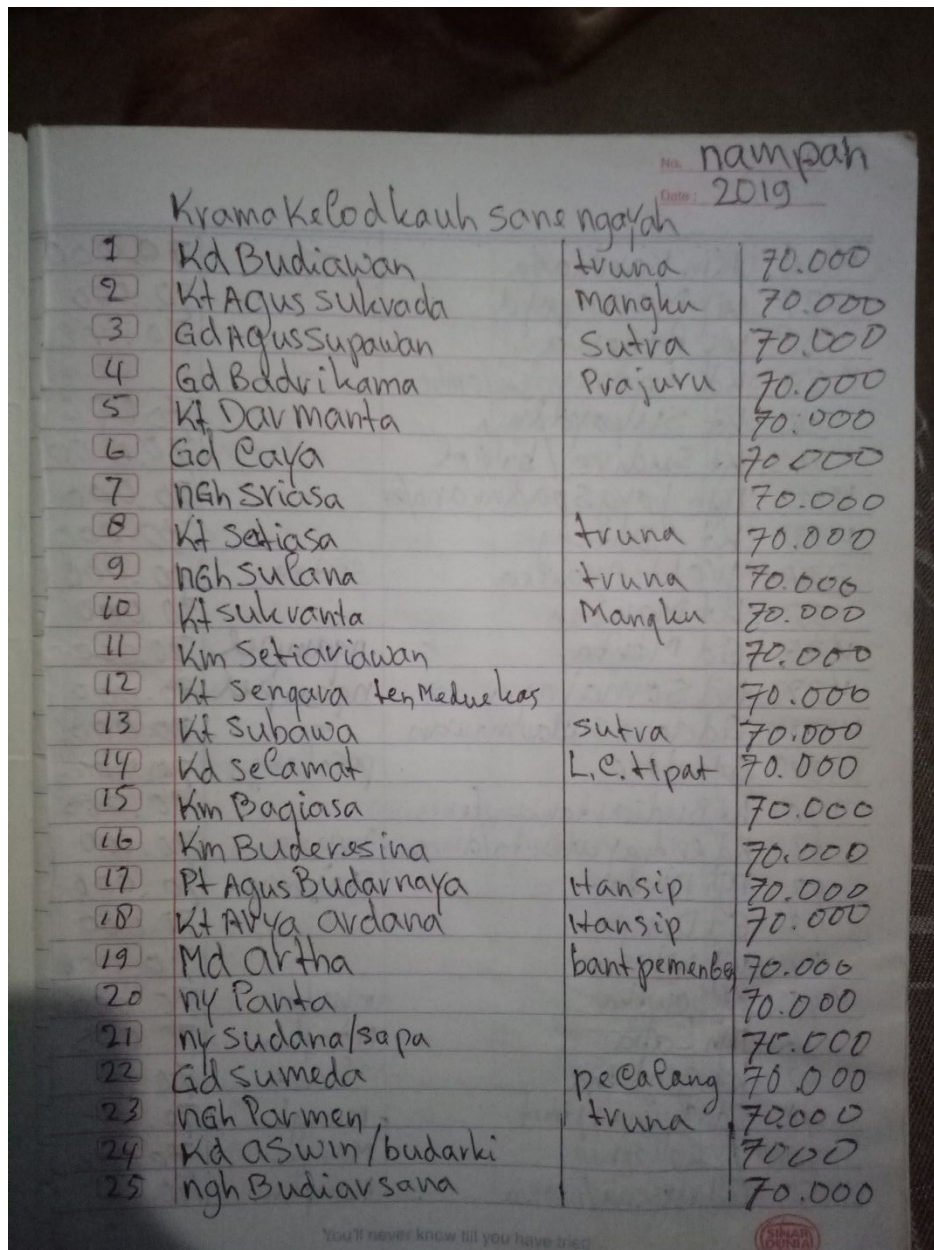 No. nampah
Date: 2019
Krama Kelod kauh sane ngayah
1 Kd Budiawan truna 70.000
2 Kt Agus sukrada Mangku 70.000
3 Gd Agus Supawan Sutra 70.000
4 Gd Badrikama Prajuru 70.000
5 Kt Darmanta 70.000
6 Gd Caya 70.000
7 nGh Sriasa 70.000
8 Kt Setiasa truna 70.000
9 nGh Sulana truna 70.000
10 Kt sukranta Mangku 70.000
11 Km Setiariawan 70.000
12 Kt Sengara ten Meduekas 70.000
13 Kt Subawa sutra 70.000
14 Kd selamat L.C. tipat 70.000
15 Km Bagiasa 70.000
16 Km Buderesina 70.000
17 Pt Agus Budarnaya Hansip 70.000
18 Kt Arya ardana Hansip 70.000
19 Md artha bant 70.000
20 ny Panta 70.000
21 ny sudana/sapa 70.000
22 Gd sumeda pecalang 70.000
23 nGh Parmen truna 70.000
24 Kd aswin/budarki 7000
25 ngh Budiarsana 70.000
You'll never know till you have tried
SINAR DUNIA